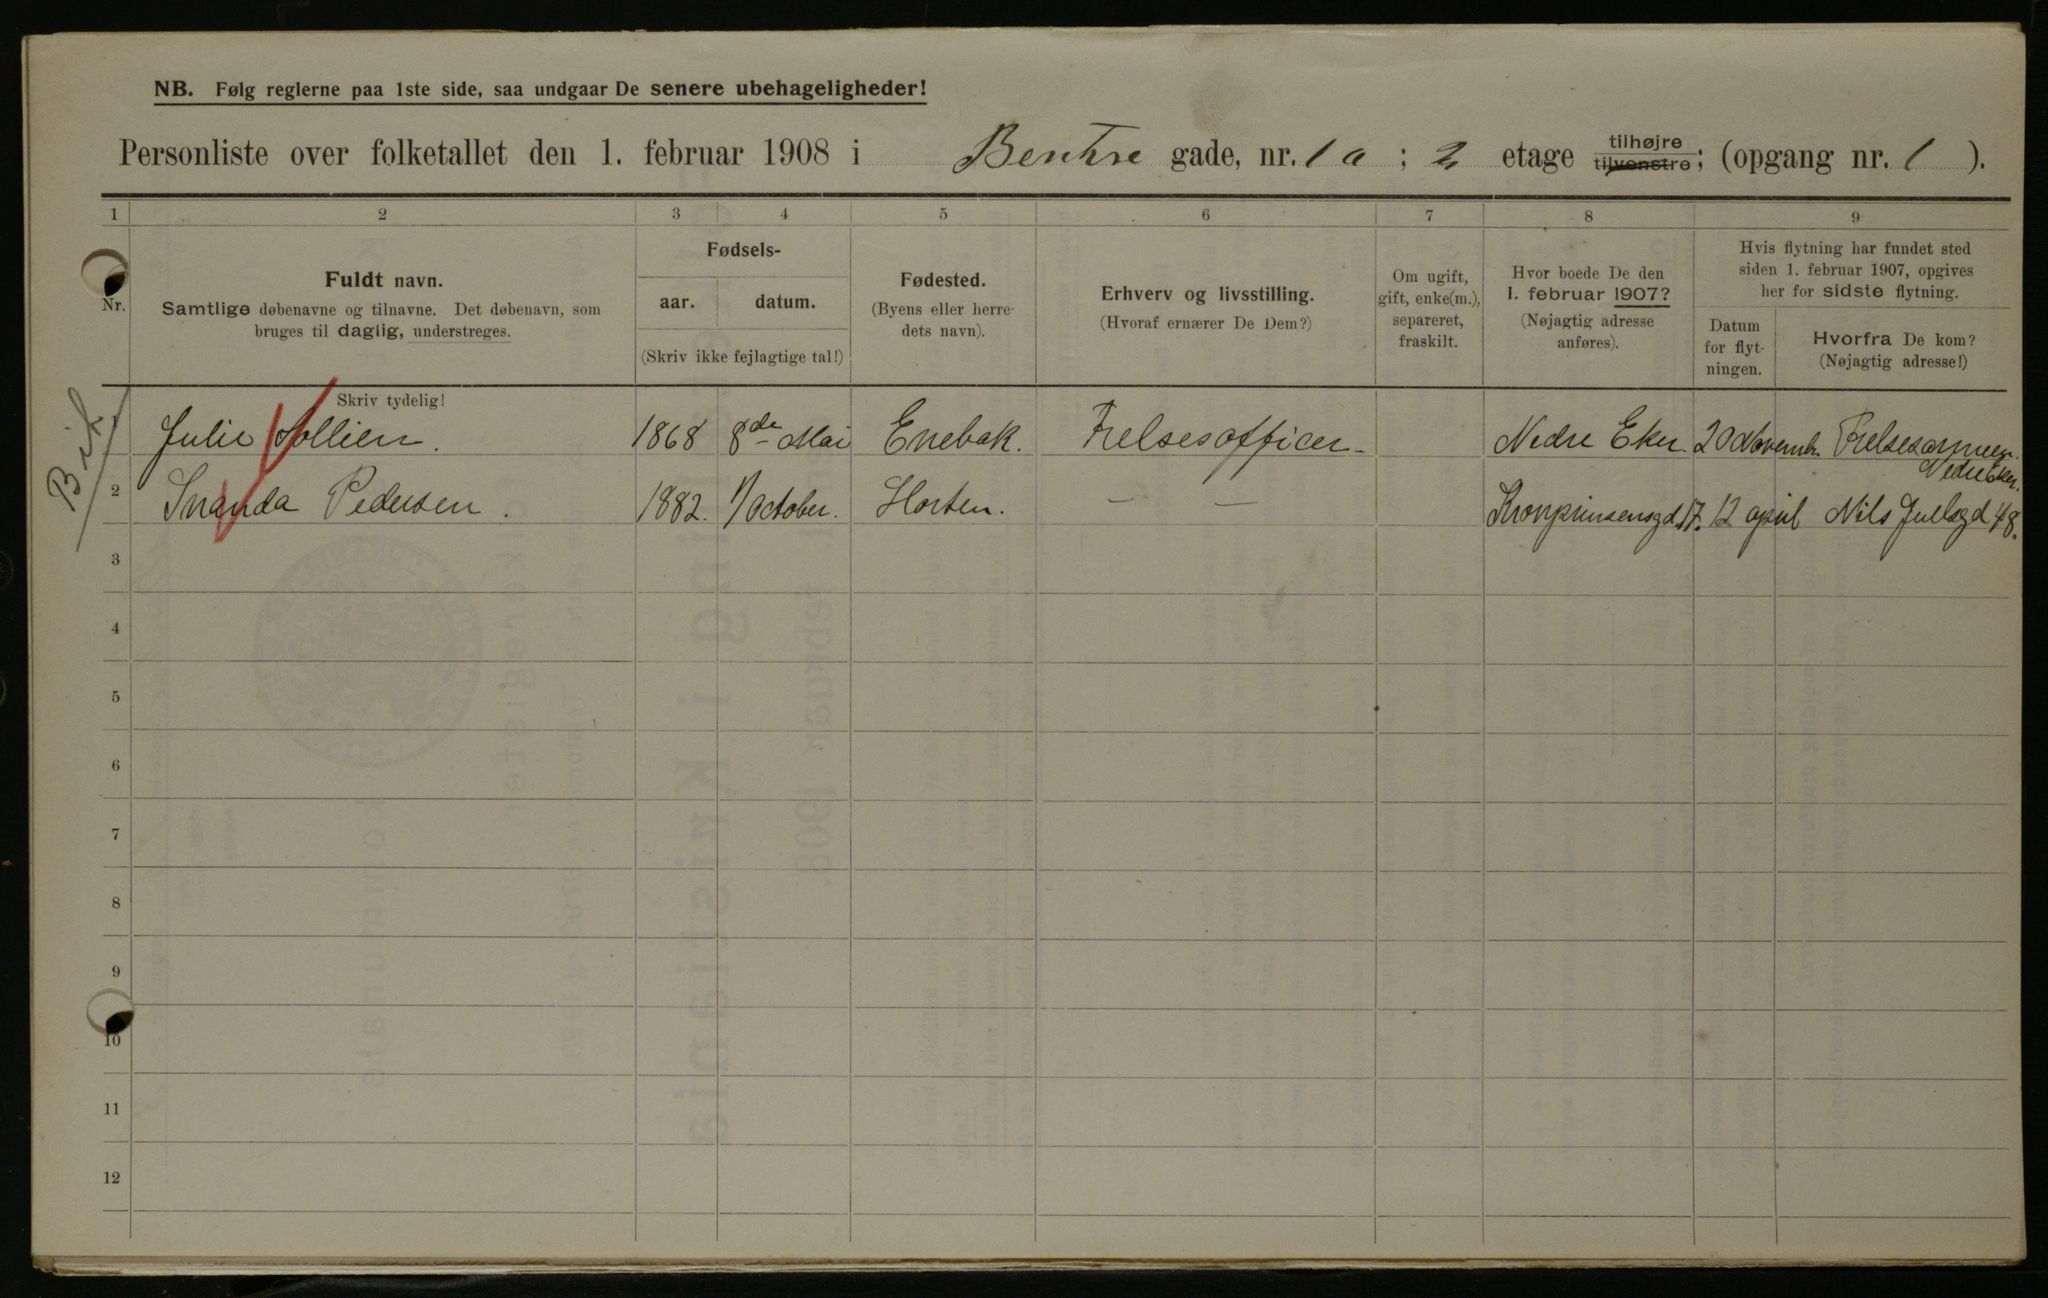 NB. Følg reglerne paa 1ste side, saa undgaar De senere ubehageligheder!
Personliste over folketallet den 1. februar 1908 i Bentse gade, nr. 1 a ; 2 etage tilhøjre tilvenstre; (opgang nr. 1 ).
1 2 3 4 5 6 7 8 9
Nr.
Fuldt navn.
Samtlige døbenavne og tilnavne. Det døbenavn, som
bruges til daglig, understreges.
Skriv tydelig!
Fødsels-
aar. datum.
(Skriv ikke fejlagtige tal!)
Fødested.
(Byens eller herre-
dets navn).
Erhverv og livsstilling.
(Hvoraf ernærer De Dem?)
Om ugift,
gift, enke(m.),
separeret,
fraskilt.
Hvor boede De den
1. februar 1907?
(Nøjagtig adresse
anføres).
Hvis flytning har fundet sted
siden 1. februar 1907, opgives
her for sidste flytning.
Datum
for flyt-
ningen.
Hvorfra De kom?
(Nøjagtig adresse!)
1 Julie Sollien. 1868 8de Mai Enebak. Frelsesofficer Nedre Eker. 20 Novemb. Frelsesarmeen.
Nedre Eker.
2 Pedersen. 1882. 1/October. Horten. — — Kronprinsensgd. 17. 12 april Nils Juelsgd 48.
3
4
5
6
7
8
9
10
11
12